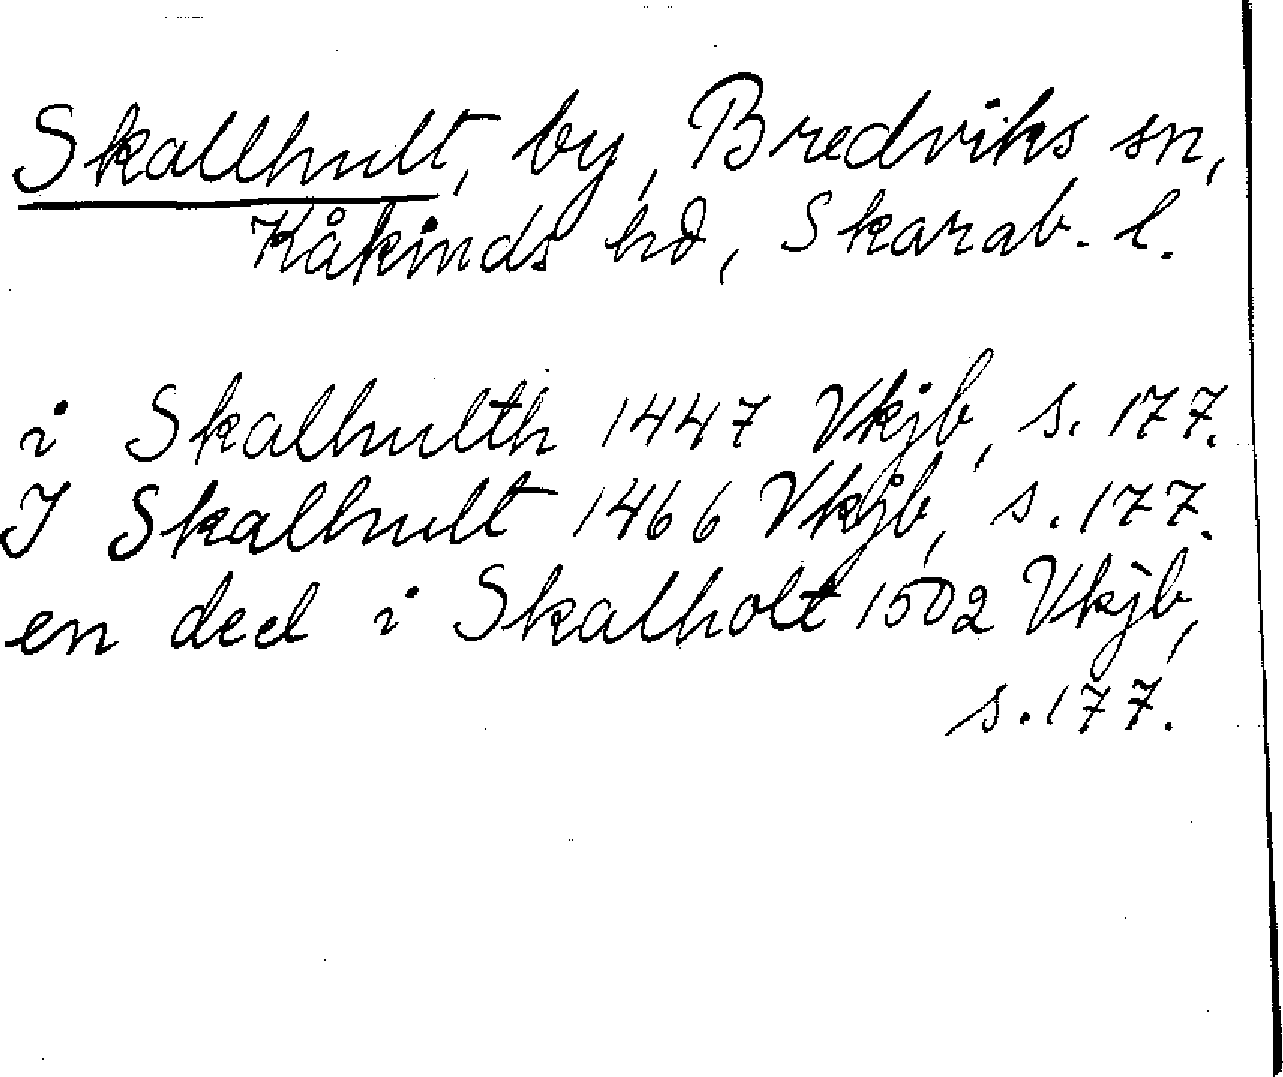 Skallhult, by, Bredviks sn,
Kåkinds hd, Skarab. l.
i Skalhulth 1447 Vkjb, s. 177.
I Skalhult 1466 Vkjb, s. 177.
en deel i Skalholt 1502 Vkjb,
s. 177.